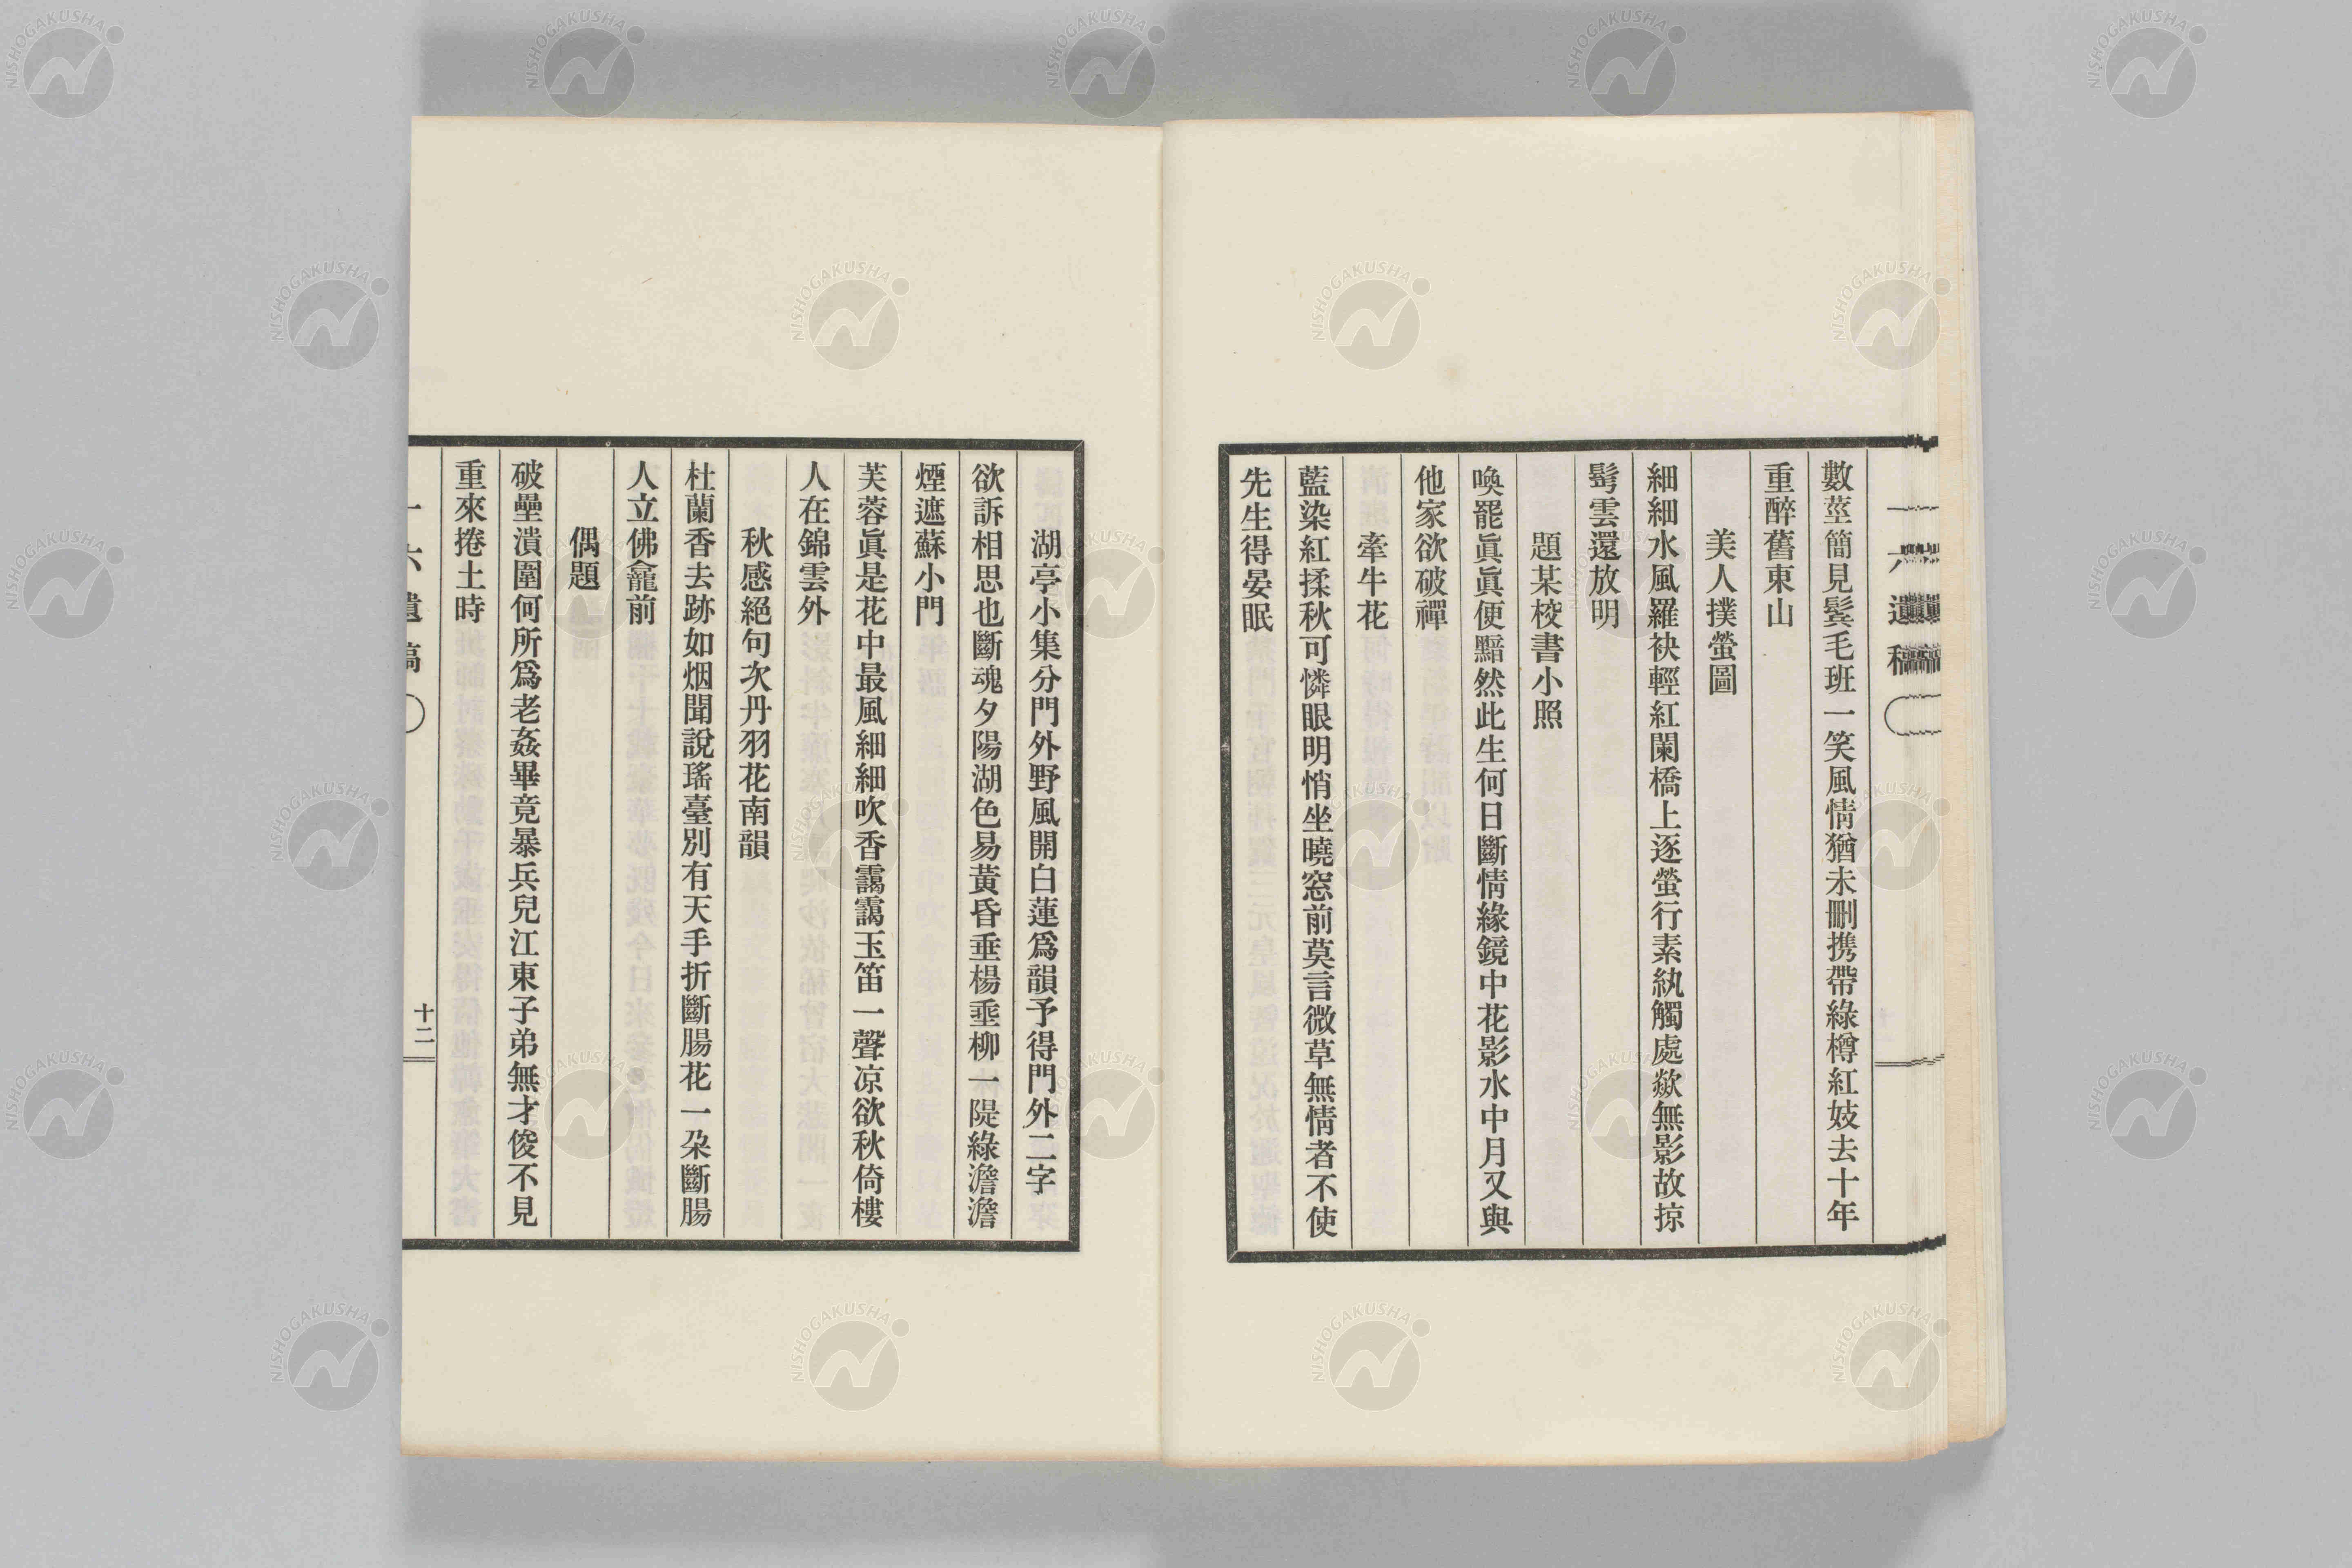 數莖簡見鬓毛班一笑風情猶未刪携帶綠樽紅妓去十年
重醉舊東山
美人撲螢圖
細細水風羅袂輕紅闌橋上逐螢行素紈觸處歘無影故掠
髩雲還放明
題某校書小照
喚罷眞眞便黯然此生何日斷情緣鏡中花影水中月又與
他家欲破禪
牽牛花
藍染紅揉秋可憐眼明悄坐曉窓前莫言微草無情者不使
先生得晏眠
湖亭小集分門外野風開白蓮爲韻予得門外二字
欲訴相思也斷魂夕陽湖色易黃昏垂楊垂柳一隄綠澹澹
煙遮蘇小門
芙蓉眞是花中最風細細吹香靄靄玉笛一聲凉欲秋倚樓
人在錦雲外
秋感絕句次丹羽花南韻
杜蘭香去跡如烟聞說瑤臺別有天手折斷腸花一朶斷腸
人立佛龕前
偶題
破壘潰圍何所爲老姦畢竟暴兵兒江東子弟無才俊不見
重來捲土時
一六遺稿
十二
NISHOGAKUSHA